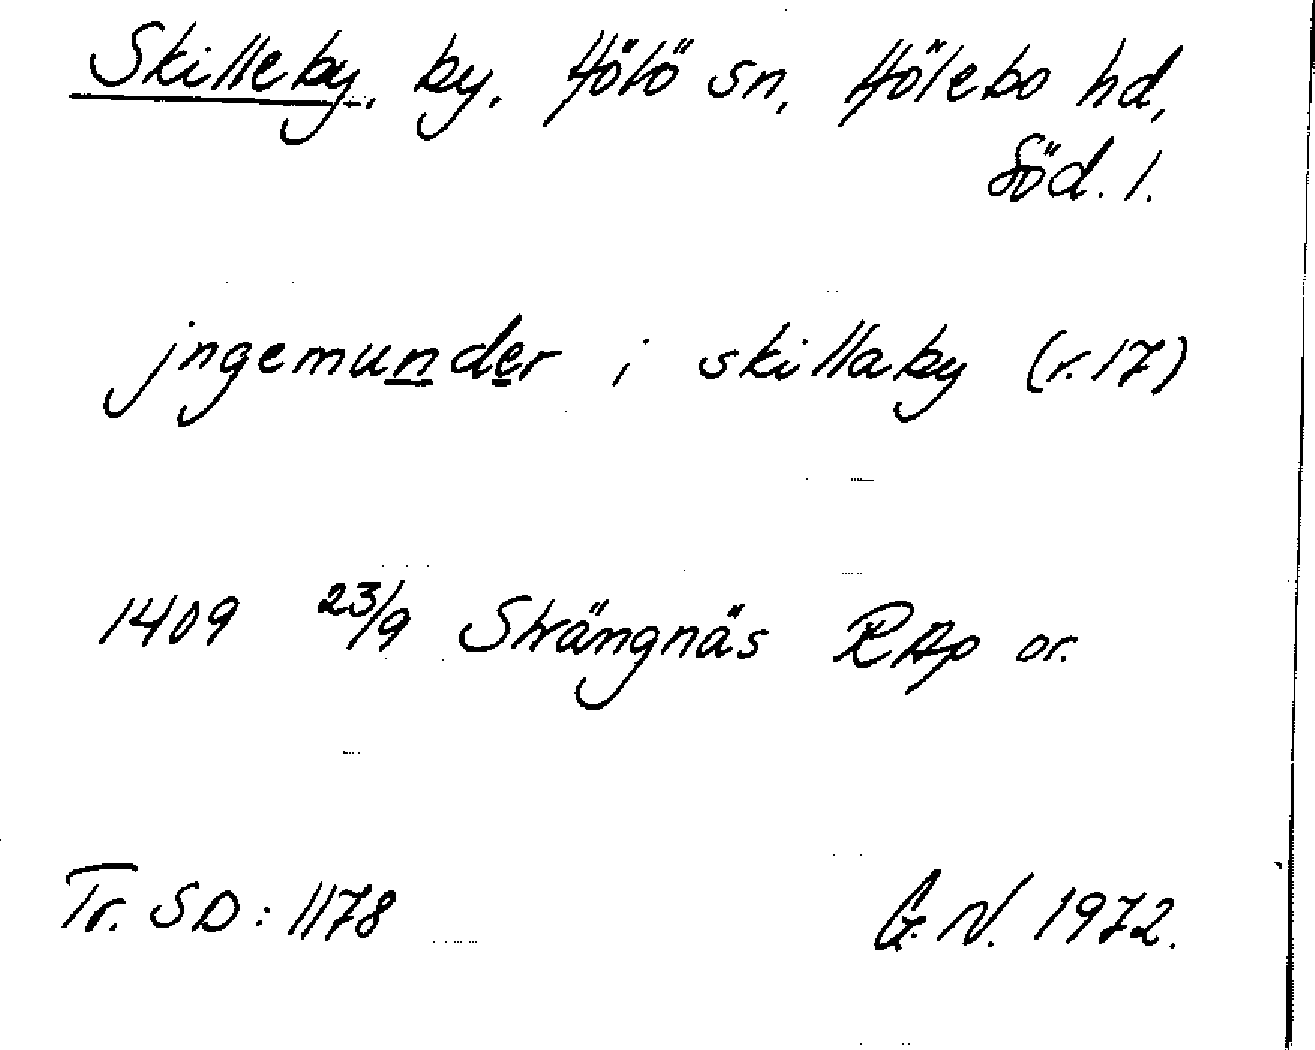 Skilleby, by, Hölö sn, Hölebo hd,
Söd. l.
jngemunder i skillaby (r. 17)
1409 23/9 Strängnäs RAp or.
Tr. SD: 1178 G. N. 1972.